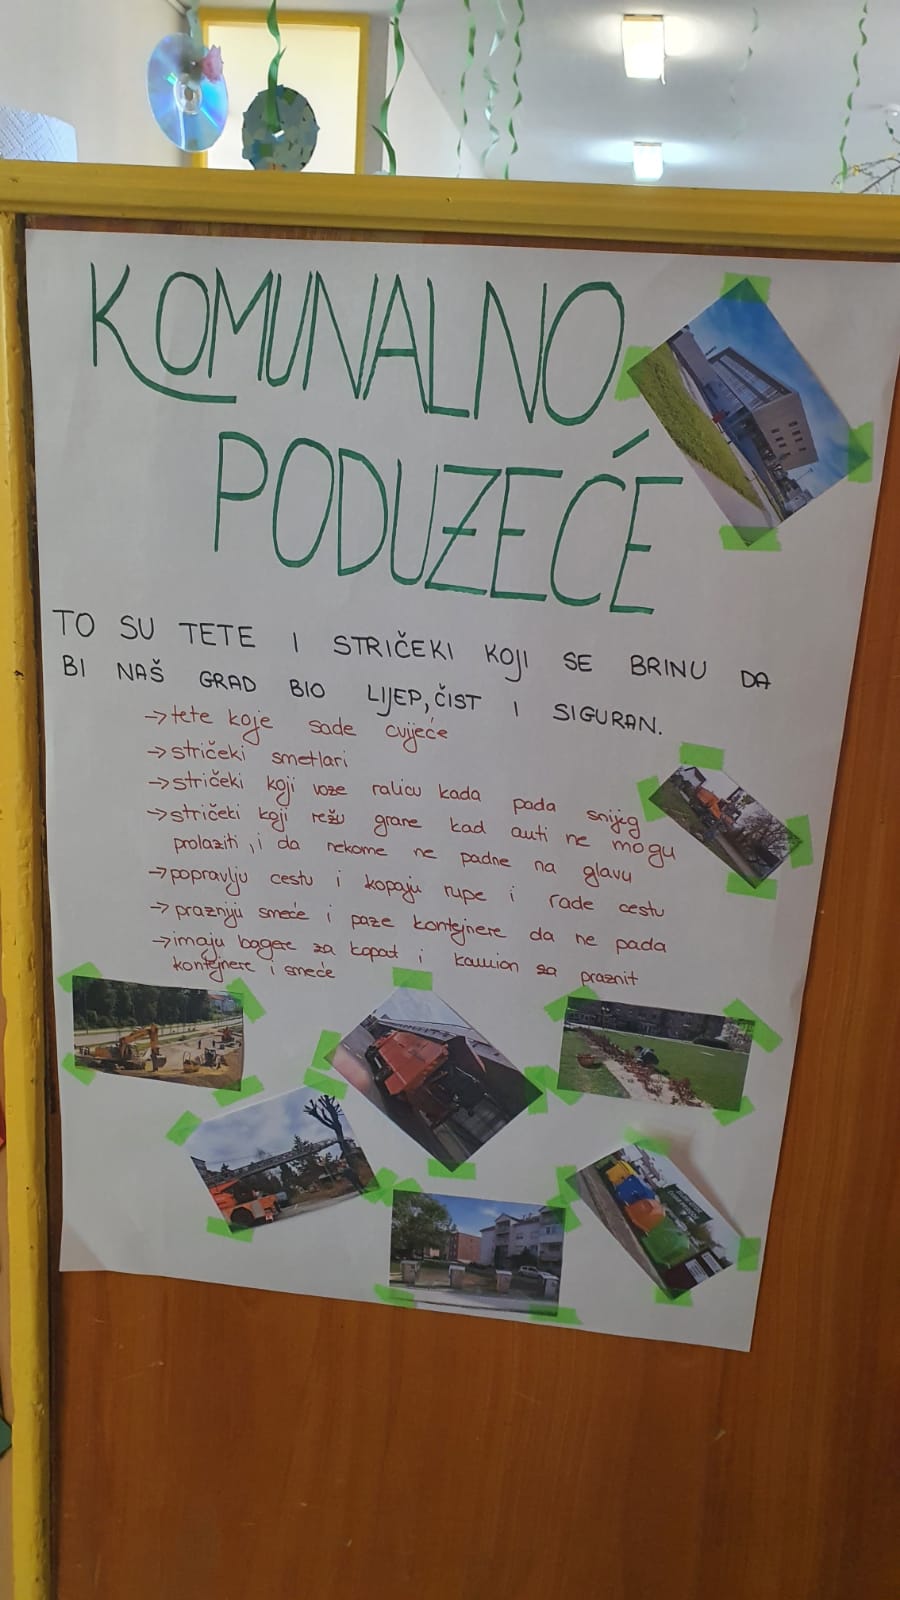 KOMUNALNO
PODUZEĆE
TO SU TETE I STRIČEKI KOJI SE BRINU DA
BI NAŠ GRAD BIO LIJEP, ČIST I SIGURAN.
→ tete koje sade cvijeće
→ stričeki smetlari
→ stričeki koji voze ralicu kada pada snijeg
→ stričeki koji režu grane kad auti ne mogu
prolaziti, i da nekome ne padne na glavu
→ popravlju cestu i kopaju rupe i rade cestu
→ prazniju smeće i paze kontejnere da ne pada
→ imaju bagere za kopat i kamion za praznit
kontejnere i smeće